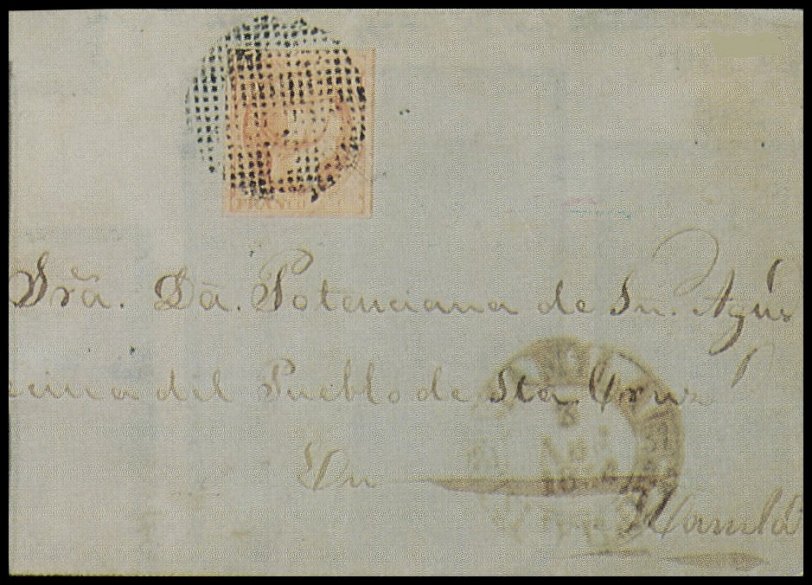 FRANCO
Sra. Da. Potenciana de Sn. Agus
cina del Pueblo de Sta. Cruz
En
Manila